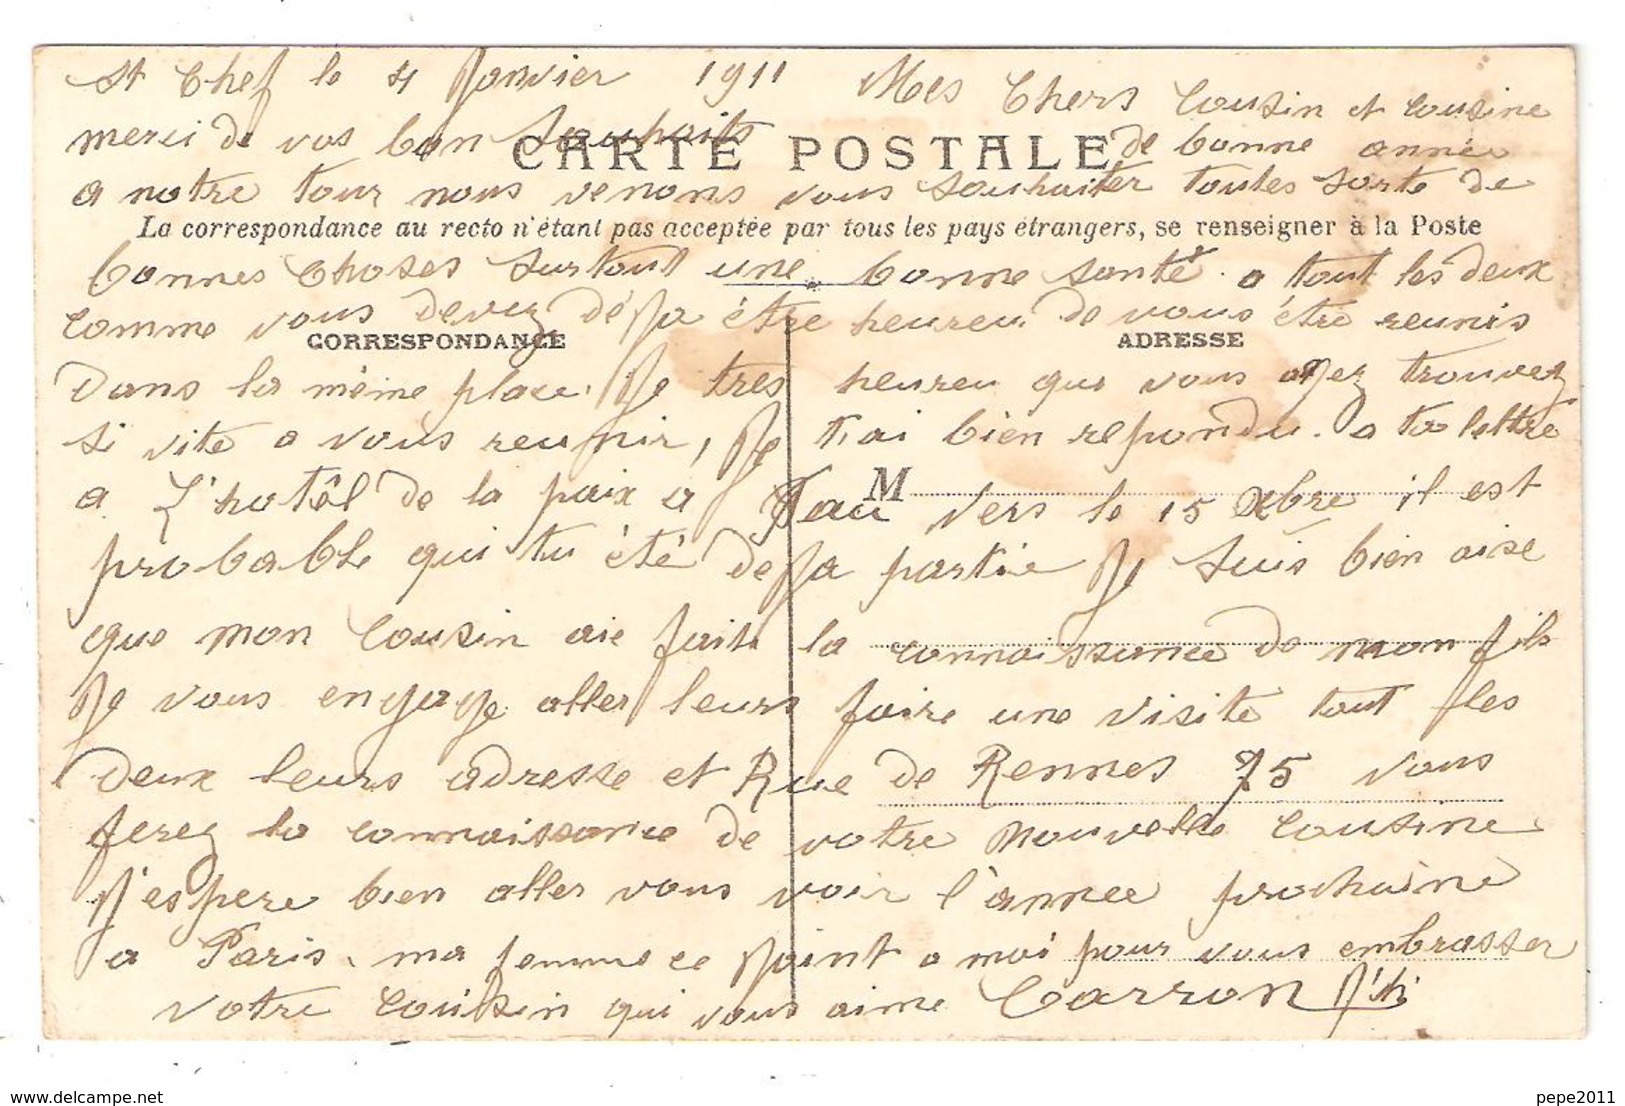 St Chef le 4 Janvier 1911 Mes Chers Cousin et cousine
merci de vos bon souhaits de bonne année
CARTE POSTALE
a notre tour nous venons vous souhaiter toutes sorte de
La correspondance au recto n'étant pas acceptée par tous les pays étrangers, se renseigner à la Poste
bonnes choses surtout une bonne santé a tout les deux
comme vous devez déja être heureu de vous être reunis
CORRESPONDANCE
ADRESSE
dans la même place. Je tres heureu que vous ayez trouvez
si vite a vous reunir, Je t'ai bien repondu a ta lettre
M
a L'hotêl de la paix a Pau vers le 15 Xbre il est
probable qui tu été deja partie Je suis bien aise
que mon cousin aie faite la connaissance de mon fils
Je vous engage aller leurs faire une visite tout les
deux leurs adresse et Rue de Rennes 75 vous
ferez la connaissance de votre nouvelle cousine
J'espere bien aller vous voir l'annee prochaine
a Paris, ma femme ce joint a moi pour vous embrasser
votre cousin qui vous aime Carron
delcampe.net
pepe2011